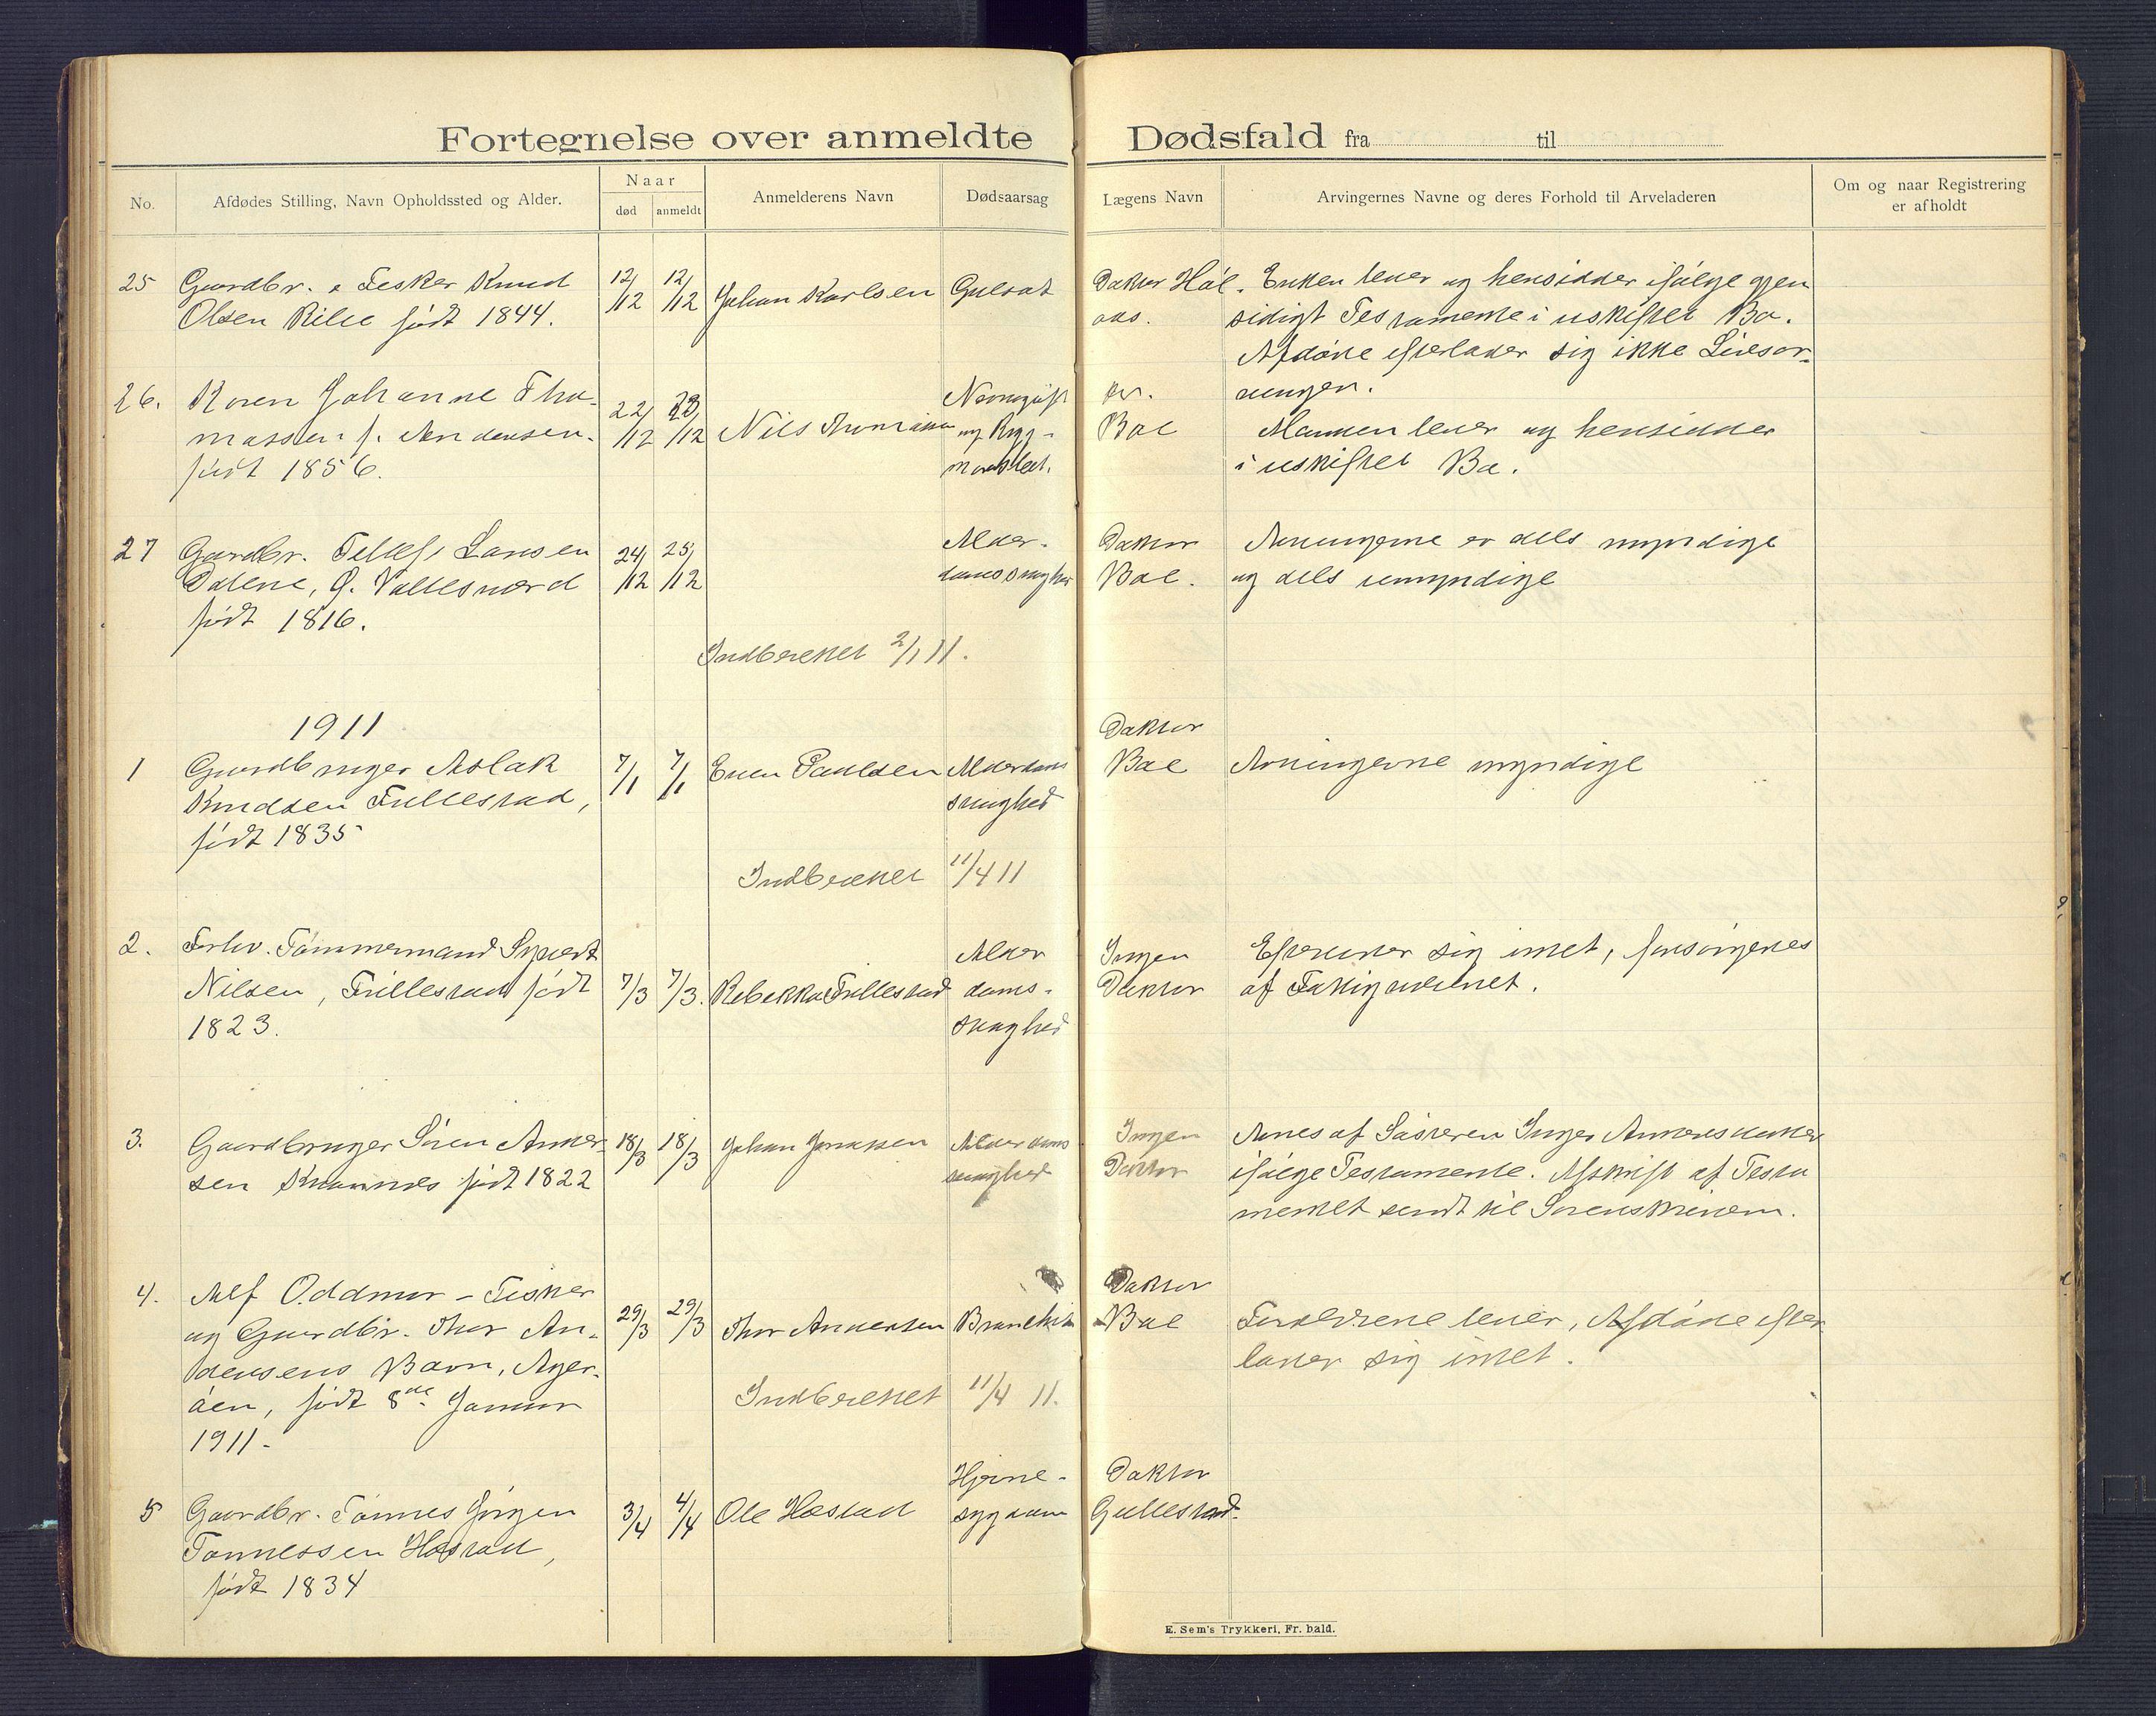 Fortegnelse over anmeldte Dødsfald fra til
No.
Afdødes Stilling, Navn Opholdssted og Alder.
Naar
død
anmeldt
Anmelderens Navn
Dødsaarsag
Lægens Navn
Arvingernes Navne og deres Forhold til Arveladeren
Om og naar Registrering
er afholdt
25
Gaardbr. & Fisker Knud
Olsen Rilie født 1844.
12/12
12/12
Johan Karlsen
Gulsot
Doktor Hol
Enken lever og hensidder ifølge gjen
sidigt Testamente i uskiftet Bo.
Afdøde efterlader sig ikke Livsar-
vinger.
26.
Karen Johanne Tho-
massen f. Andersen.
født 1856.
22/12
23/12
Nils Thomassen
og Ryg-
Dr.
Boe
Manden lever og hensidder
i uskiftet Bo.
27
Gaardbr. Tellef Larsen
Dalene, G. Vallesværd
født 1816.
24/12
25/12
Alder-
domssvaghed
Doktor
Boe.
Arvingerne er dels myndige
og dels umyndige
Indberettet 2/1 11.
1911
1
Gaardbruger Aslak
Knudsen Fullestad,
født 1835
7/1
7/1
Even Paulsen
Alderdoms
svaghed
Doktor
Boe
Arvingerne myndige
Indberettet 11/4 11
2.
Forhv. Tømmermand Syvert
Nilsen, Fullestad født
1823.
7/3
7/3.
Rebekka Fullestad
Alder
doms-
svaghed
Ingen
Doktor
Efterlader sig intet, forsørgedes
af Fattigvæsenet.
3.
Gaardbruger Søren Anders-
sen Knannes født 1822
18/3
18/3
Johan Jonassen
Alderdoms
svaghed
Ingen
Doktor
Arves af Søsteren Inger Andersdatter
ifølge Testamente. Afskrift af Testa
mentet sendt til Sorenskriveren.
4.
Alf Oddmor - Fisker
og Gaardbr. Thor An-
dersens Barn, Ager-
øen, født 8de Januar
1911.
29/3
29/3
Thor Andersen
Bronchit
Doktor
Boe
Forældrene lever, Afdøde efter
lader sig intet.
Indberettet 11/4 11.
5
Gaardbr. Tønnes Jørgen
Tønnessen Hæstad,
født 1834
3/4
4/4
Ole Hæstad
Hjerne-
sygdom
Doktor
Gullestad.
E. Sem's Trykkeri, Fr. hald.